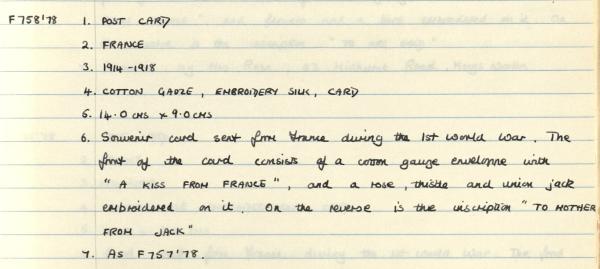 F758'78 1. POST CARD
2. FRANCE
3. 1914-1918
4. COTTON GAUZE, EMBROIDERY SILK, CARD
5. 14.0 CMS x 9.0 CMS
6. Souvenir card sent from France during the 1st World War. The
front of the card consists of a cotton gauge envelope with
"A KISS FROM FRANCE", and a rose, thistle and union jack
embroidered on it. On the reverse is the inscription "TO MOTHER
FROM JACK"
7. As F757'78.